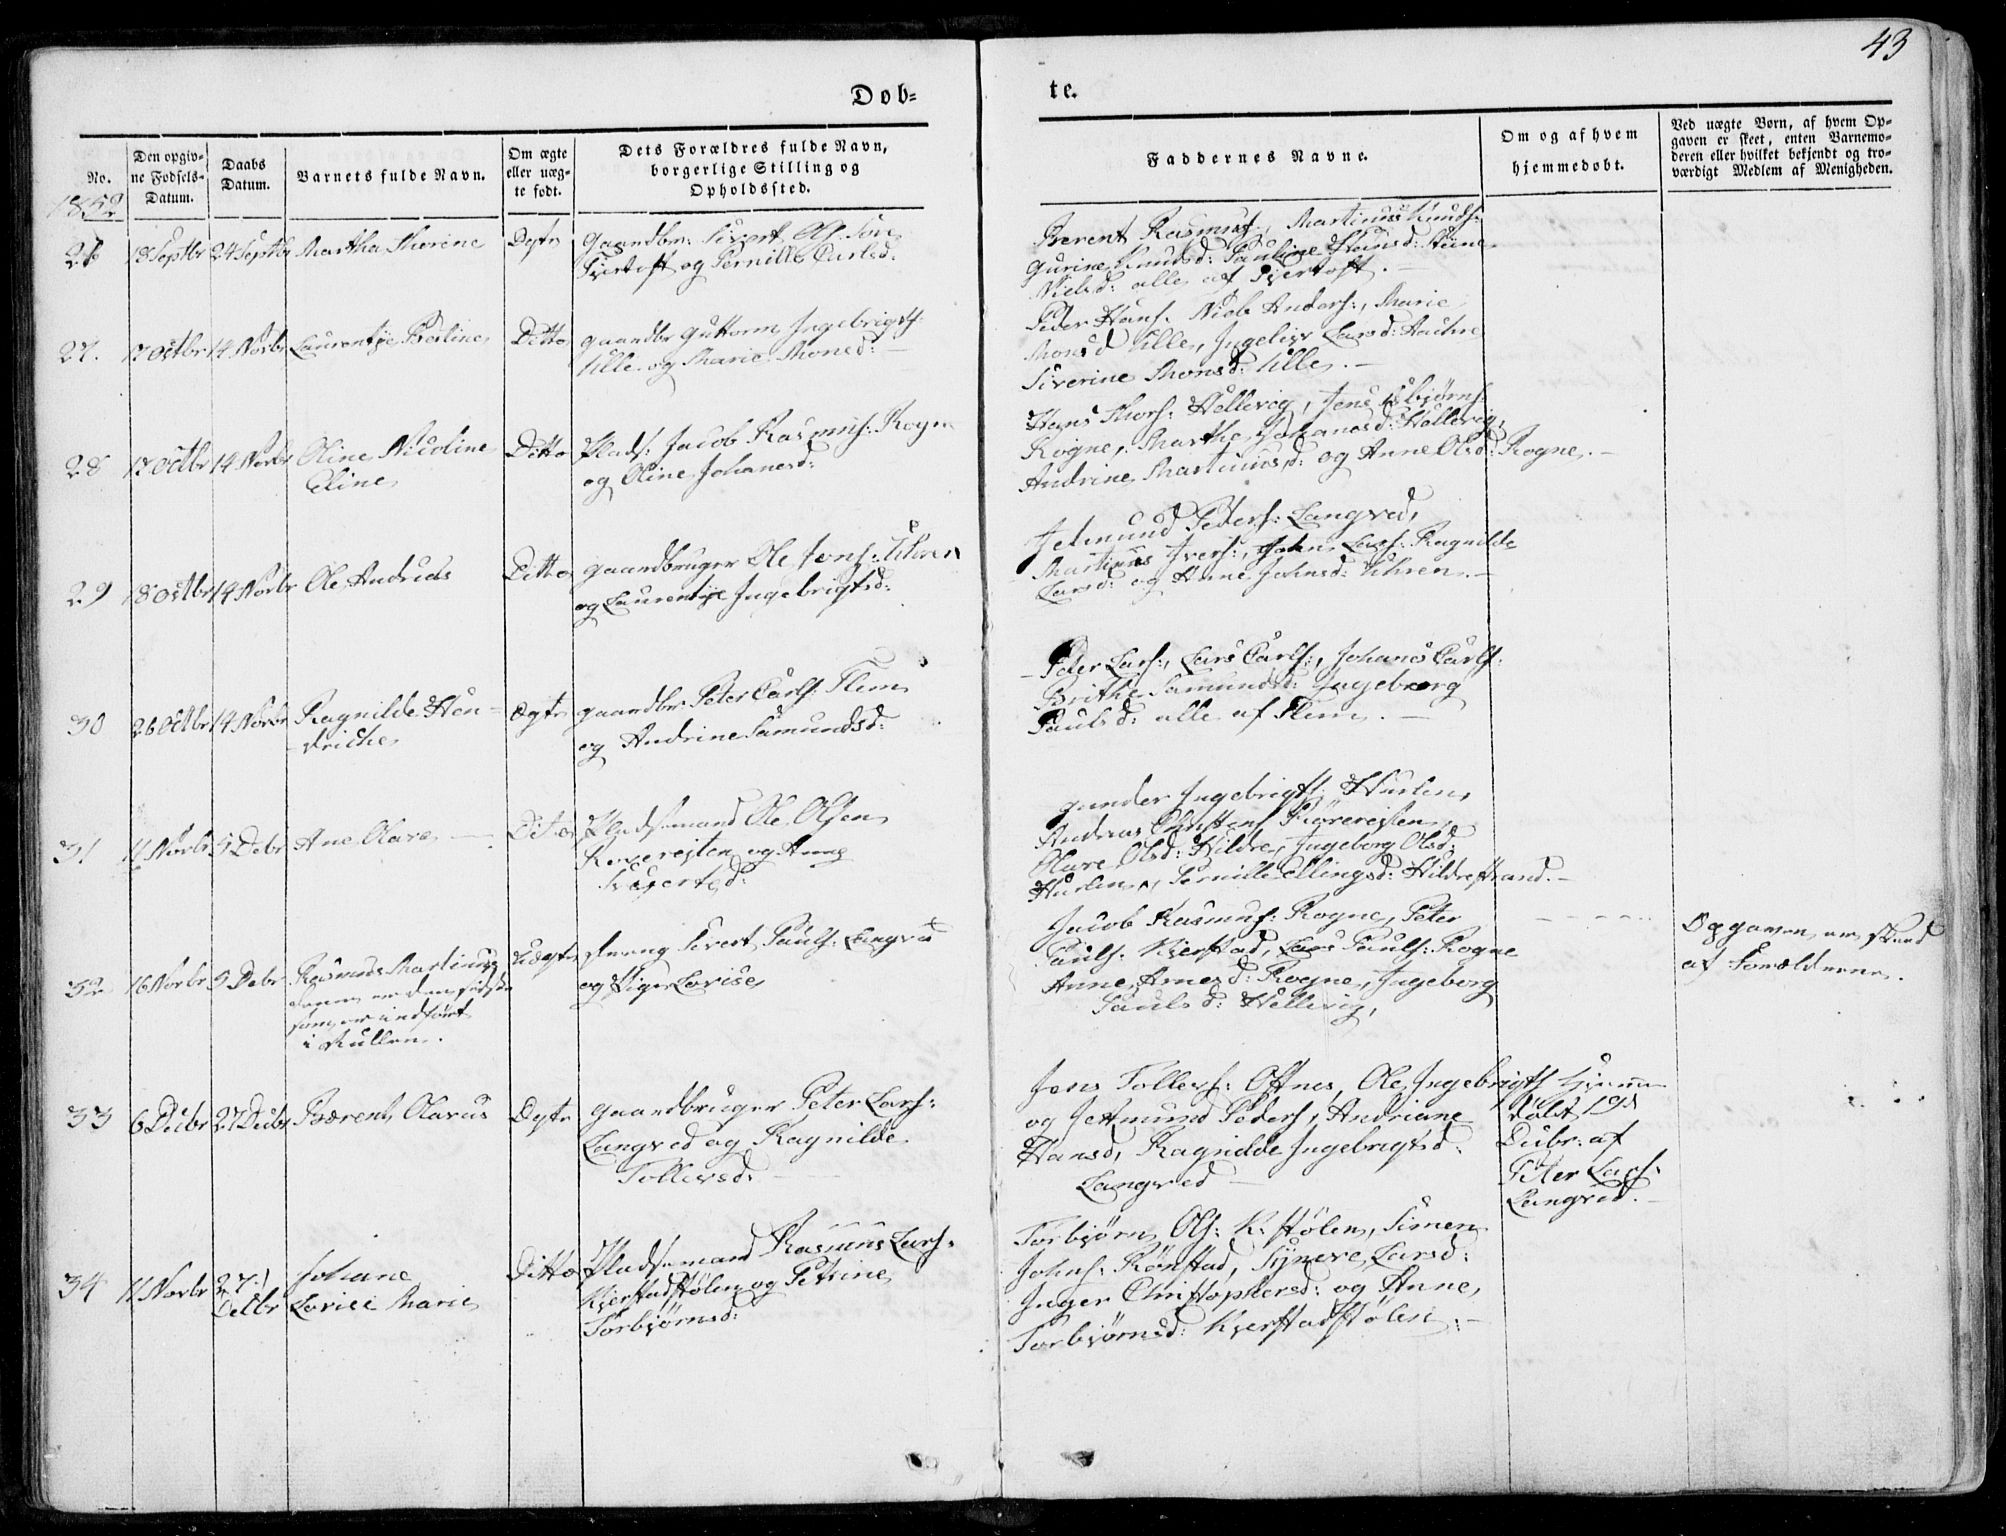 43
Dob=
te.
No.
Den opgiv=
ne Fødsels=
Datum.
Daabs
Datum.
Barnets fulde Navn.
Om ægte
eller uæg=
te født.
Dets Forældres fulde Navn,
borgerlige Stilling og
Opholdssted.
Faddernes Navne.
Om og af hvem
hjemmedøbt.
Ved uægte Børn, af hvem Op=
gaven er skeet, enten Barnemo=
deren eller hvilket bekjendt og tro=
værdigt Medlem af Menigheden.
1852
26 13 Septbr 24 Septbr Martha Therine Ægte Gaardbr: Sivert
Fjertoft og Pernille Carlsd.
Berent Rasmuss:, Martinus Knuds:
Gurine Knudsd: Pauline Hansd:
Nielsd: alle af Fjertoft.
27. 17 Octbr 14 Novbr Laurentze Berline Ditto gaardbr Guttorm Ingebrigts:
Ulle og Marie Monsd:
Peder Hans. Niels Anders:, Marie
Monsd Ulle, Ingeline Larsd:
Siverine Monsd: Ulle.
28 17 Octbr 14 Novbr Oline Nicoline
Eline
Ditto Plads: Jacob Rasmuss: Rogne
og Oline Johanesd:
Hans Mons: Hellevig, Jens Esbjørns
Rogne, Marthe Johanesd: Hellevig,
Andrine Martinusd: og Anne Olsd: Rogne.
29 18 Octbr 14 Novbr Ole Andreas Ditto gaardbruger Ole Jons: Uhren
og Laurentze Ingebrigtsd:
Jetmund Peders: Langved,
Martinus Ivers:, John Lars: Ragnilde
Larsd: og Anne Johnsd: Uhren.
30 26 Octbr 14 Novbr Ragnilde Hen-
driche
Ægte gaardbr Peter Carls: Flem
og Andrine Samundsd:
Peter Lars:, Lars Carls:, Johanes Carls:
Brithe Samundsd: Ingeborg
Paulsd: alle af Flem.
31 11 Novbr 5 Decbr Ane Olave Ditto Pladsmand Ole Olsen
Røvereiten og Anne
Sivertsd:
Gunder Ingebrigts: Hurlen,
Andreas Christens Røvereiten,
Olave Olsd: Hildre, Ingeborg Olsd:
Hurlen, Pernille Ellingsd: Hildrestrand.
32 16 Novbr 5 Decbr Rasmus Martinus
denne er den sidste
som er indført
i Rullen.
Uægte dreng Sivert Pauls: Langved
og Pige Lovise
Jacob Rasmuss: Rogne, Peter
Pauls: Kjerstad, Lars Pauls: Rogne
Anne Arnesd: Rogne, Ingeborg
Paulsd: Hellevig,
Opgaven er skeed
af Forældrene.
33 6 Decbr 27 Decbr Bærent Olaus Ægte gaardbruger Peter Lars:
Langved og Ragnilde
Tollevsd:
Jens Tollevs: Ostnes, Ole Ingebrigts
og Jetmund Peders, Andriane
Hansd, Ragnilde Ingebrigtsd:
Langved
hjemme
døbt 19d
Decbr: af
Peter Lars:
Langved.
34 11 Novbr 27
Decbr
Johane
Lovise Marie
Ditto Pladsmand Rasmus Lars:
Kjerstadstølen og Petrine
Torbjørnsd:
Torbjørn Ols: K:stølen, Simen
Johns: Rønstad, Synneve Larsd:
Inger Christophersd: og Anne
Torbjørnsd: Kjerstadstølen.